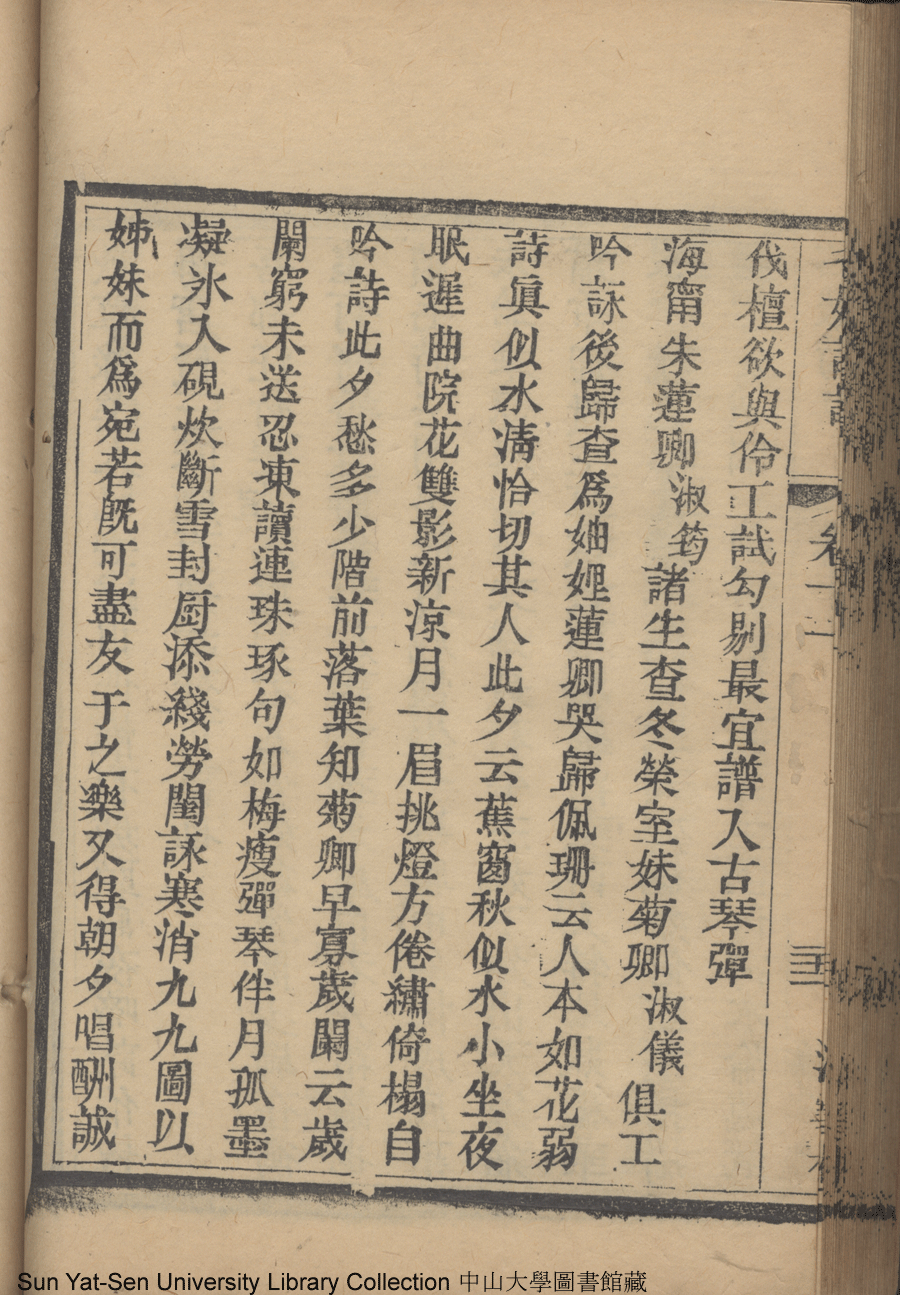 伐檀欲與伶工試勾剔最宜譜入古琴彈
海甯朱蓮卿淑筠諸生查冬榮室妹菊卿淑儀俱工
吟詠後歸查爲妯娌蓮卿哭歸佩珊云人本如花弱
詩眞似水淸恰切其人此夕云蕉窗秋似水小坐夜
眠遲曲院花雙影新凉月一眉挑燈方倦繡倚榻自
吟詩此夕愁多少階前落葉知菊卿早寡歲闌云歲
闌窮未送忍凍讀連珠琢句如梅瘦彈琴伴月孤墨
凝氷入硯炊斷雪封厨添綫勞閨詠寒消九九圖以
姊妹而爲宛若旣可盡友于之樂又得朝夕唱酬誠
Sun Yat-Sen University Library Collection 中山大學圖書館藏